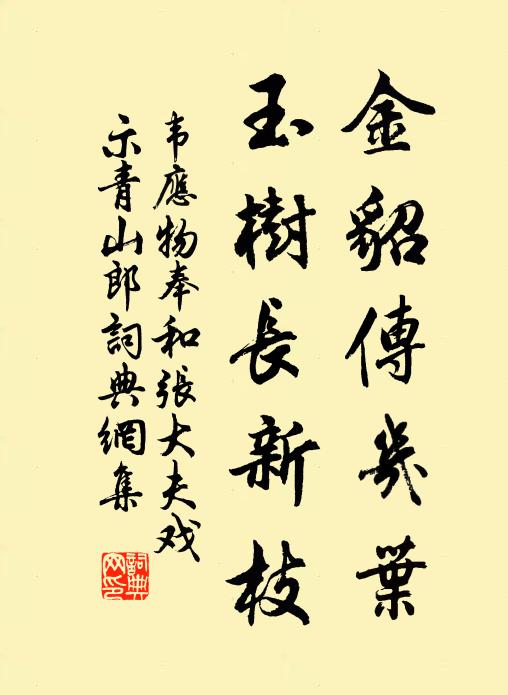 金貂傳幾葉
玉樹長新枝
韦應物奉和張大夫戏
示青山郎詞典網集
詞典网印